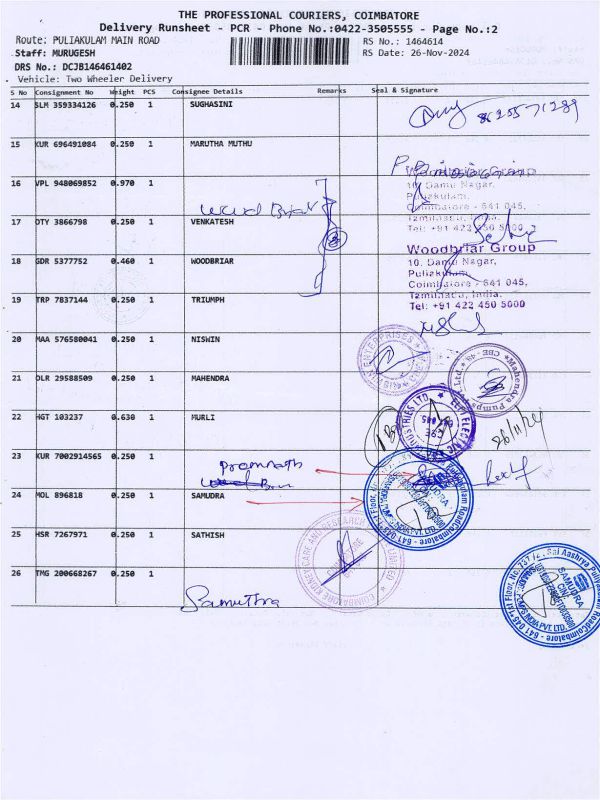 THE PROFESSIONAL COURIERS, COIMBATORE
Delivery Runsheet - PCR - Phone No.:0422-3505555 - Page No.:2
Route: PULIAKULAM MAIN ROAD RS No.: 1464614
Staff: MURUGESH RS Date: 26-Nov-2024
DRS No.: DCJB146461402
Vehicle: Two Wheeler Delivery
S No Consignment No Weight PCS Consignee Details Remarks Seal & Signature
14 SLM 359334126 0.250 1 SUGHASINI
15 KUR 696491084 0.250 1 MARUTHA MUTHU
16 VPL 948069852 0.970 1
Wood Briar
17 OTY 3866798 0.250 1 VENKATESH
18 GDR 5377752 0.460 1 WOODBRIAR
19 TRP 7837144 0.250 1 TRIUMPH
20 MAA 576580041 0.250 1 NISWIN
21 DLR 29588509 0.250 1 MAHENDRA
22 HGT 103237 0.630 1 MURLI
23 KUR 7002914565 0.250 1
Premnath
24 MOL 896818 0.250 1 SAMUDRA
25 HSR 7267971 0.250 1 SATHISH
26 TMG 200668267 0.250 1
Samuthra
Woodbriar Group
10, Damu Nagar,
Puliakulam,
Coimbatore - 641 045,
Tamilnadu, India.
Tel: +91 422 450 5000
Woodbriar Group
10, Damu Nagar,
Puliakulam,
Coimbatore - 641 045,
Tamilnadu, India.
Tel: +91 422 450 5000
ENTERPRISES
Mahendra Pumps
26/11/24
SAMUDRA
PUMPS INDIA PVT. LTD.
COIMBATORE KIDNEY CARE AND RESEARCH
SAMUDRA
PUMPS INDIA PVT. LTD.